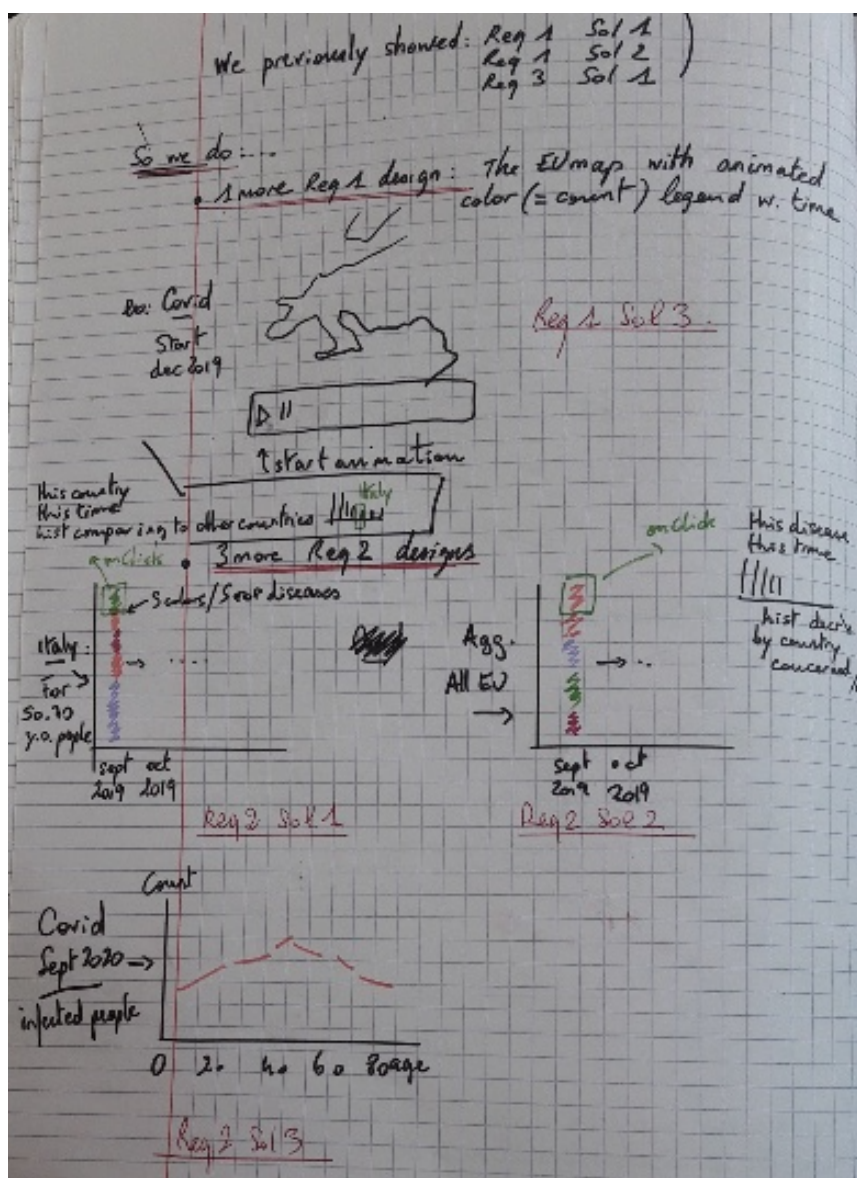 We previously showed: Req 1 Sol 1
Req 1 Sol 2
Req 3 Sol 1
So we do:...
• 1 more Req 1 design: The EU map with animated
color (= count) legend w. time
Covid
Start
dec 2019
Req 1 Sol 3
↑ start animation
this country
this time
hist comparing to other countries
Italy
• 3 more Req 2 designs
onClick
5 colors/5 top diseases
Italy:
For
50.70
y.o. people
sept oct
2019 2019
Req 2 Sol 1
onClick
this disease
this time
hist
by country
concerned
Agg.
All EU
sept oct
2019 2019
Req 2 Sol 2
Count
Covid
Sept 2020 →
infected people
0 20 40 60 80 age
Req 2 Sol 3